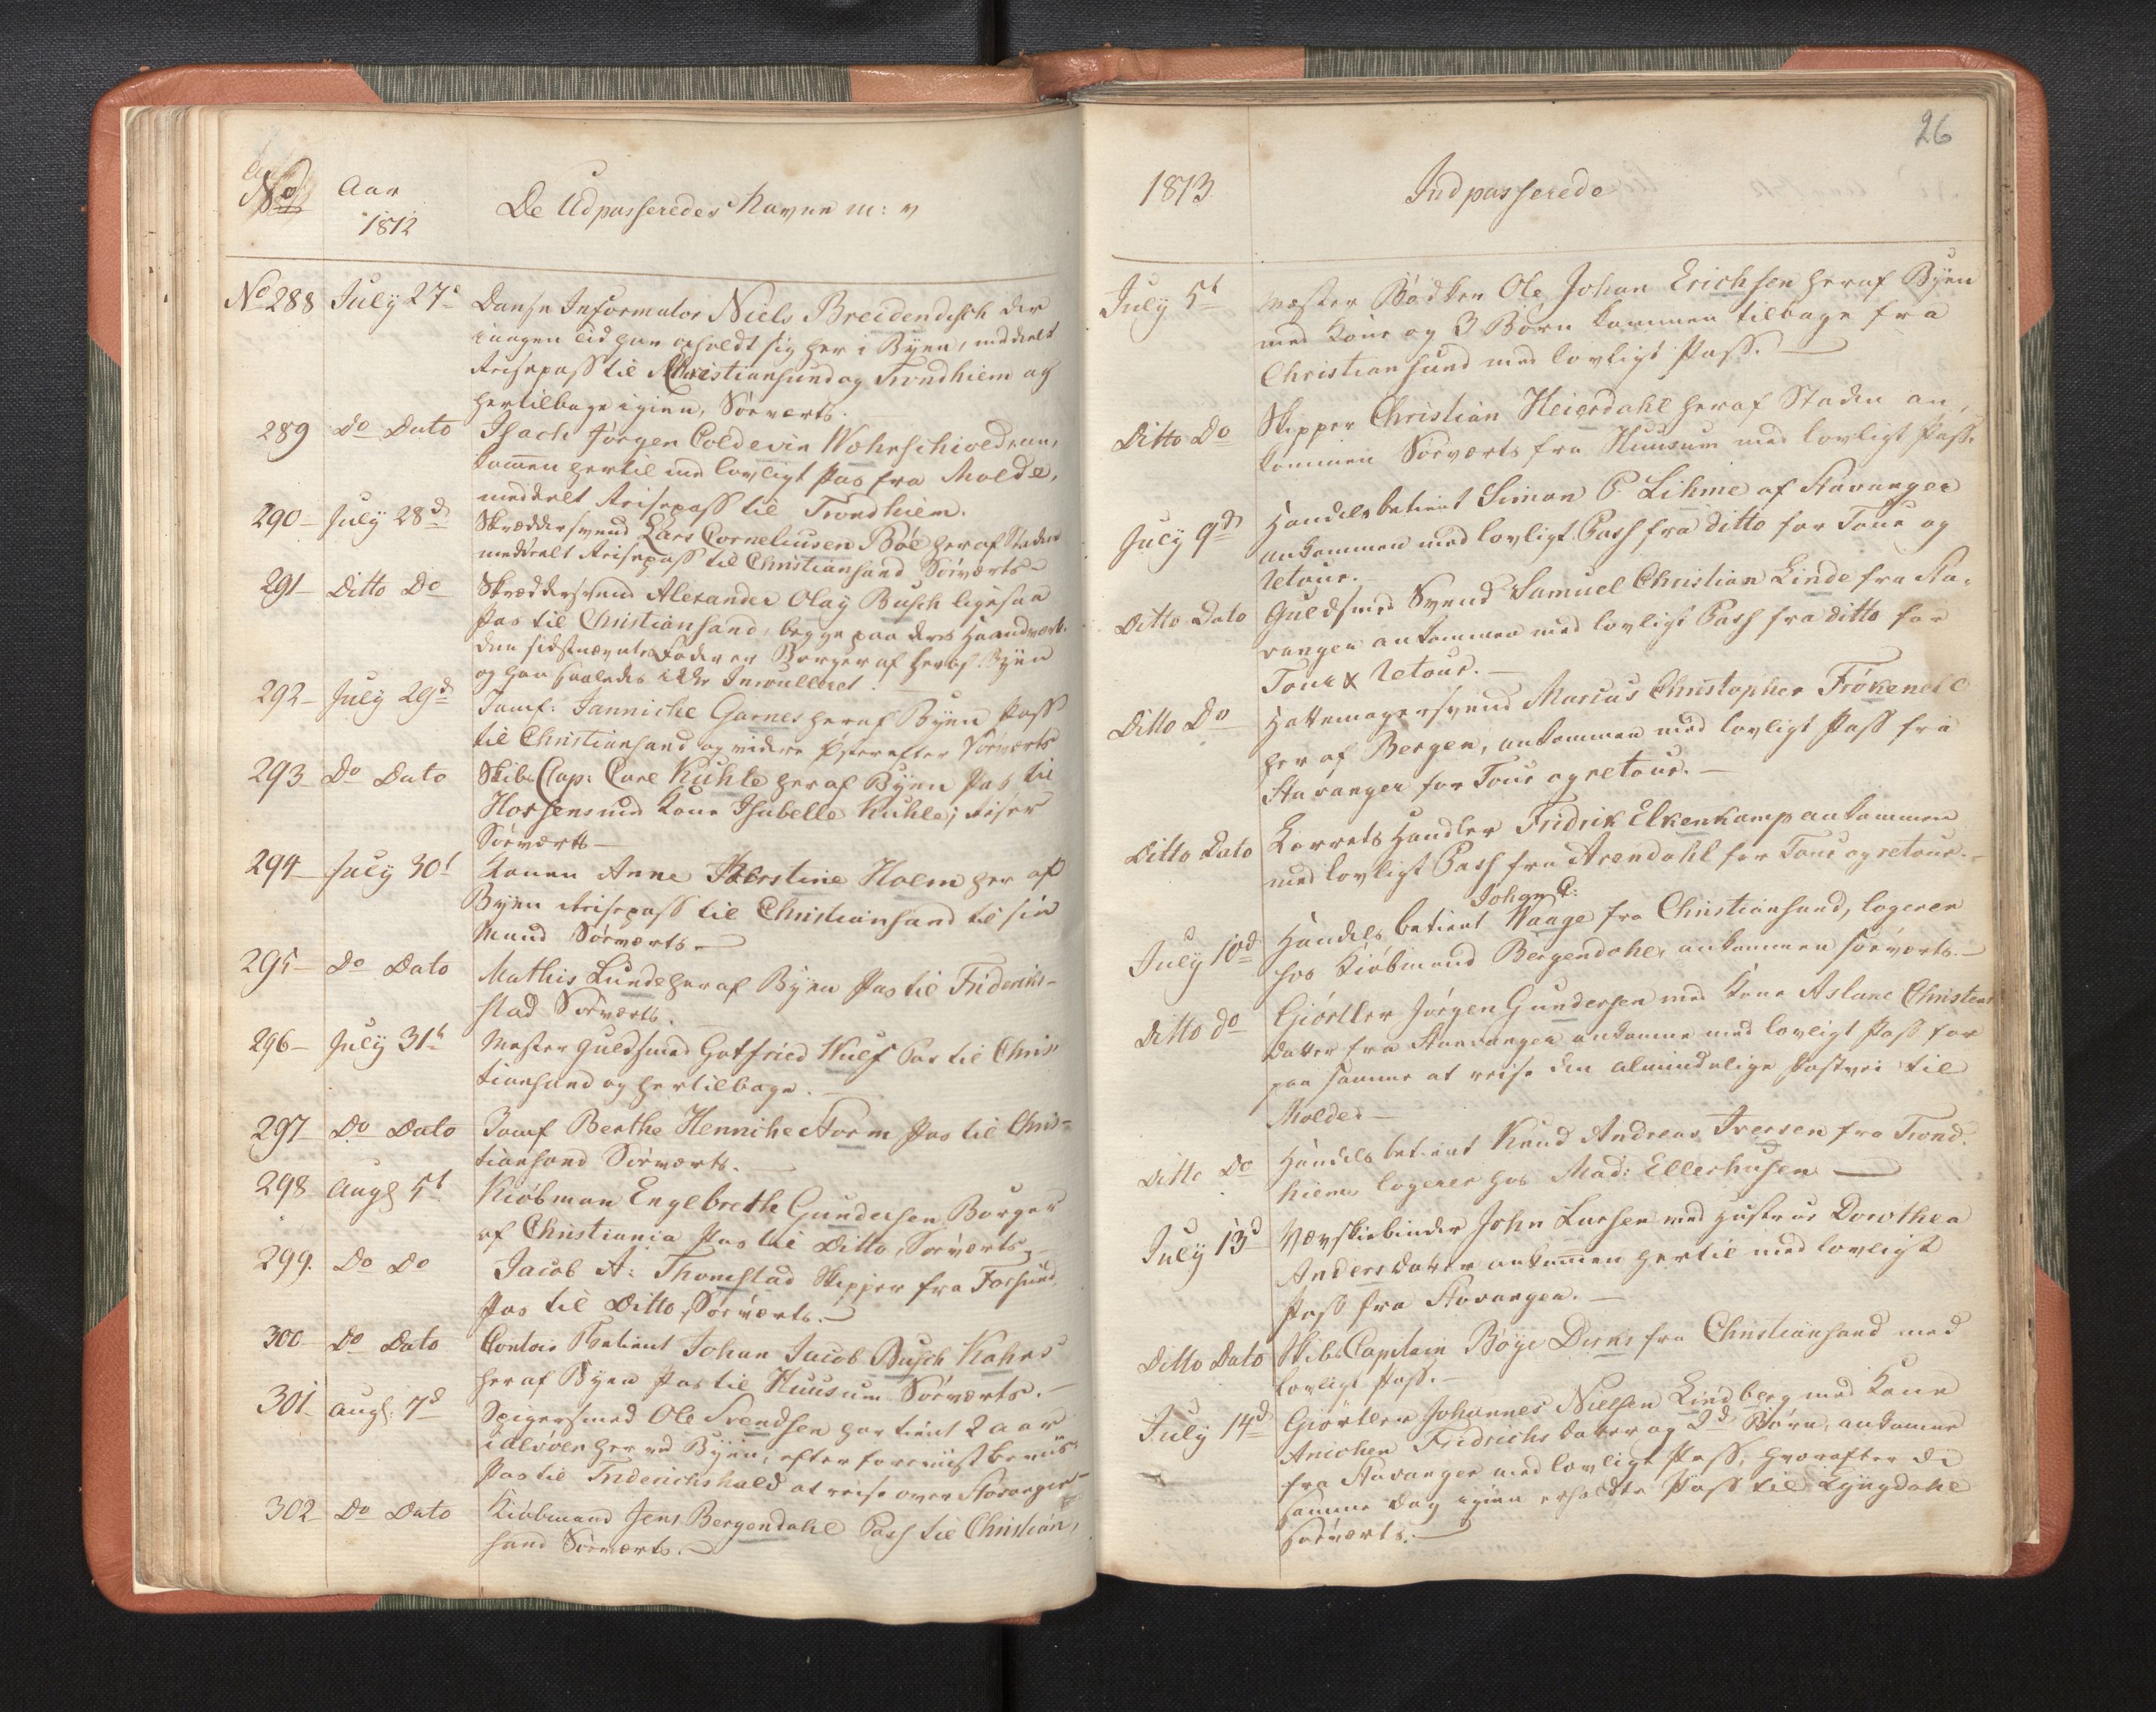 No
Aar
1812
De Udpasseredes Navne m: v
No 288 July 27de Danse Informator Niels Breidendisch der
i nogen tid har opholdt sig her i Byen, meddelt
Reisepass til Christiansund og Trondhiem og
hertilbage igien, Sørverts.
289 Do Dato Isach Jørgen Coldevin Wohnschiold an,
kommen hertil med lovligt Pas fra Molde,
meddelt Reisepass til Trondhiem.
290 July 28d Skræddersvend Lars Corneliusen Böe her af Staden
meddeelt Reisepass til Christiansand Sörværts
291 Ditto Do Skræddersvend Alexander Olay Busch ligesaa
Pas til Christiansand, begge paa deres Haandverk.
den sidstnævntes Fader er Borger af her af Byen
og han saaledes ikke Inroulleret.
292 July 29d Jomf: Janniche Garnes her af Byen Pass
til Christiansand og videre Østerefter Sørværts
293 Do Dato Skibs Cap: Carl Kuhle her af Byen Pas til
Horsens med Kone Isabelle Kuhle; reiser
Sørværts
294 July 30t Konen Anne Kerstine Holm her af
Byen Reisepass til Christiansand til sin
Mand Sørværts.
295 Do Dato Mathis Lunde her af Byen Pas til Friderich-
stad Sørværts.
296 July 31t Mester Guldsmed Gotfried Wulf Pas til Chris
tiansand og hertilbage.
297 Do Dato Jomf Berthe Henniche Storm Pas til Chris-
tiansand Sørværts.
298 Augs 5t Kiøbman Englbreth Gundersen Borger
af Christiania Pas til Ditto, Sørværts
299. Do Do Jacob A: Thomstad Skipper fra Farsund
Pas til Ditto, Sørværts.
300 Do Dato Contoir Betient Johan Jacob Busch Kahrs
her af Byen Pas til Huusum Sørværts.
301 Augs: 7d Spigersmed Ole Svendsen har tient 2 aar
her ved Byen, efter foreviist beviis
Pas til Friderichshald at reise over Stavanger
302 Do Dato Kiøbmand Jens Bergendahl Pass til Christian,
sand Sørværts.
26
1813
Indpasserede
July 5t Mester Bödker Ole Johan Erichsen her af Byen
med Kone og 3 Börn kommen tilbage fra
Christiansund med lovligt Pass.
Ditto Do Skipper Christian Heierdahl her af Staden an,
kommen Sørværts fra Huusum med lovligt Pass.
July 9d Handelsbetient Simon P. Lihme af Stavanger
ankommen med lovligt Pass fra ditto for Tour og
Retour.
Ditto Dato Guldsmed Svend Samuel Christian Linde fra Sta,
vanger ankommen med lovligt Pass fra ditto for
Tour & Retour.
Ditto Do Hattemagersvend Marcus Christopher Frökenell
her af Bergen, ankommen med lovligt Pass fra
Stavanger for Tour og retour.
Ditto Dato Handler Fridrik Elkenkamp ankommen
med lovligt Pass fra Arendahl for Tour og retour.
Johan C:
July 10d Handels betient Waage fra Christiansand, logerer
hos Kiöbmand Bergendahl, ankommen sørværts.
Ditto do Giörtler Jørgen Gundersen med Kone Aslane Christens
datter fra Stavanger ankomne med lovligt Pass for
paa samme at reise den almindelige Postvei til
Molde.
Ditto Do Handels betient Knud Andreas Iversen fra Trond,
hiem, logerer hos Mad: Ellerhusen
July 13d Vævskiebinder John Larsen med Hustrue Dorothea
Andersdatter ankommen hertil med lovligt
Pass fra Stavanger.
Ditto Dato Skibs Captain Böye Dirks fra Christiansand med
lovligt Pass.
July 14d Giörtler Johannes Nielsen Lindberg med Kone
Anichen Fridrichs datter og 2de Börn, ankomne
fra Stavanger med lovligt Pass, hvorefter de
samme Dag igien erholdte Pass til Lyngdahl
Sørværts.